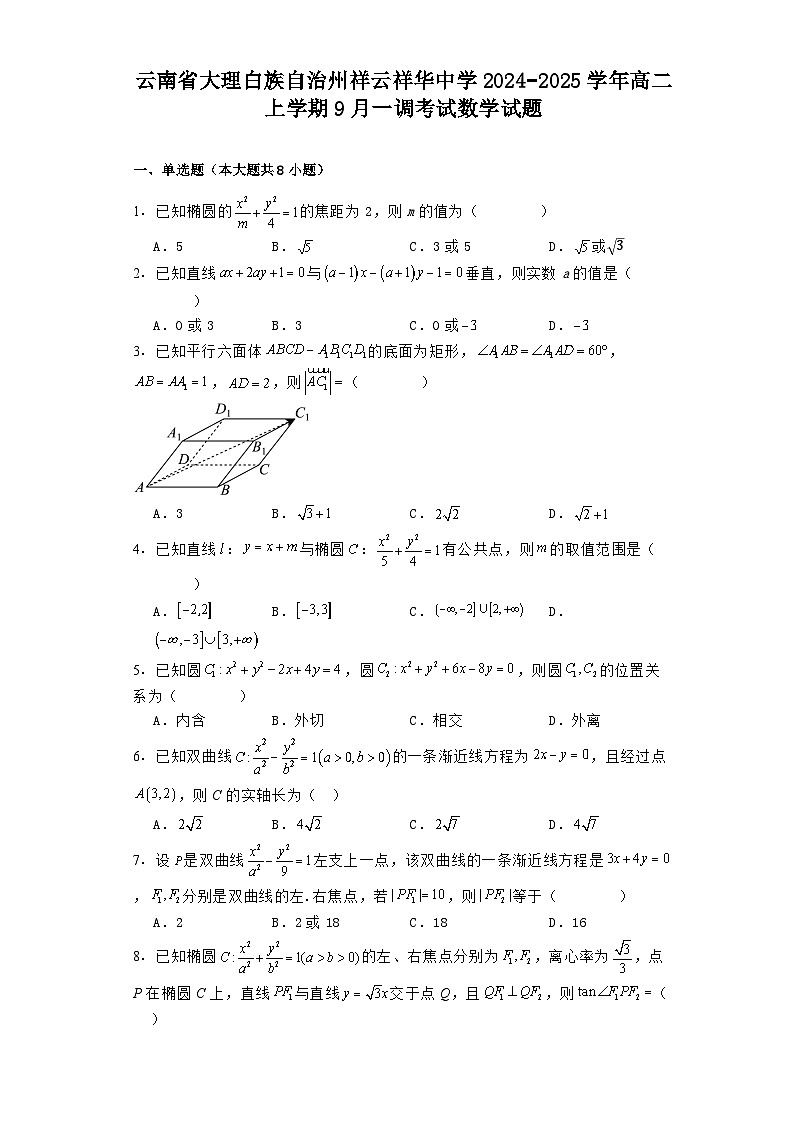 云南省大理白族自治州祥云祥华中学 2024-2025 学年高二
上学期 9 月一调考试数学试题
一、单选题（本大题共 8 小题）
1．已知椭圆的 x²/m + y²/4 = 1 的焦距为 2，则 m 的值为（　　）
A．5　B．√5　C．3 或 5　D．√5 或 √3
2．已知直线 ax+2ay+1=0 与 (a−1)x−(a+1)y−1=0 垂直，则实数 a 的值是（
）
A．0 或 3　B．3　C．0 或 −3　D．−3
3．已知平行六面体 ABCD−A₁B₁C₁D₁ 的底面为矩形，∠A₁AB=∠A₁AD=60°，
AB=AA₁=1，AD=2，则 |AC₁| =（　　）
D₁
C₁
A₁
B₁
D
C
A
B
A．3　B．√3+1　C．2√2　D．√2+1
4．已知直线 l：y=x+m 与椭圆 C：x²/5 + y²/4 = 1 有公共点，则 m 的取值范围是（
）
A．[−2,2]　B．[−3,3]　C．(−∞,−2]∪[2,+∞)　D．
(−∞,−3]∪[3,+∞)
5．已知圆 C₁:x²+y²−2x+4y=4，圆 C₂:x²+y²+6x−8y=0，则圆 C₁,C₂ 的位置关
系为（　　）
A．内含　B．外切　C．相交　D．外离
6．已知双曲线 C:x²/a² − y²/b² = 1(a>0,b>0) 的一条渐近线方程为 2x−y=0，且经过点
A(3,2)，则 C 的实轴长为（　）
A．2√2　B．4√2　C．2√7　D．4√7
7．设 P 是双曲线 x²/a² − y²/9 = 1 左支上一点，该双曲线的一条渐近线方程是 3x+4y=0
，F₁,F₂ 分别是双曲线的左.右焦点，若 |PF₁|=10，则 |PF₂| 等于（　　）
A．2　B．2 或 18　C．18　D．16
8．已知椭圆 C:x²/a² + y²/b² = 1(a>b>0) 的左、右焦点分别为 F₁,F₂，离心率为 √3/3，点
P 在椭圆 C 上，直线 PF₁ 与直线 y=√3x 交于点 Q，且 QF₁⊥QF₂，则 tan∠F₁PF₂ =（
）